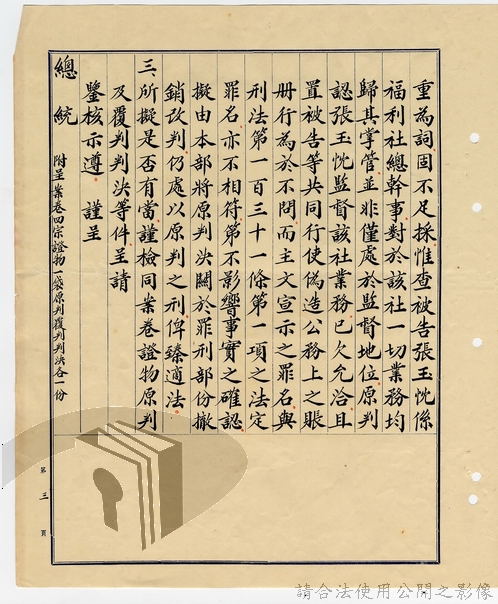 重為詞固不足採惟查被告張玉忱係
福利社總幹事對於該社一切業務均
歸其掌管並非僅處於監督地位原判
認張玉忱監督該社業務已欠允洽且
置被告等共同行使偽造公務上之賬
册行為於不問而主文宣示之罪名與
刑法第一百三十一條第一項之法定
罪名亦不相符第不影響事實之確認
擬由本部將原判決關於罪刑部份撤
銷改判仍處以原判之刑俾臻適法
三、所擬是否有當謹檢同案卷證物原判
及覆判判決等件呈請
鑒核示遵 謹呈
總統
附呈案卷四宗證物一袋原判覆判判決各一份
第三頁
請合法使用公開之影像